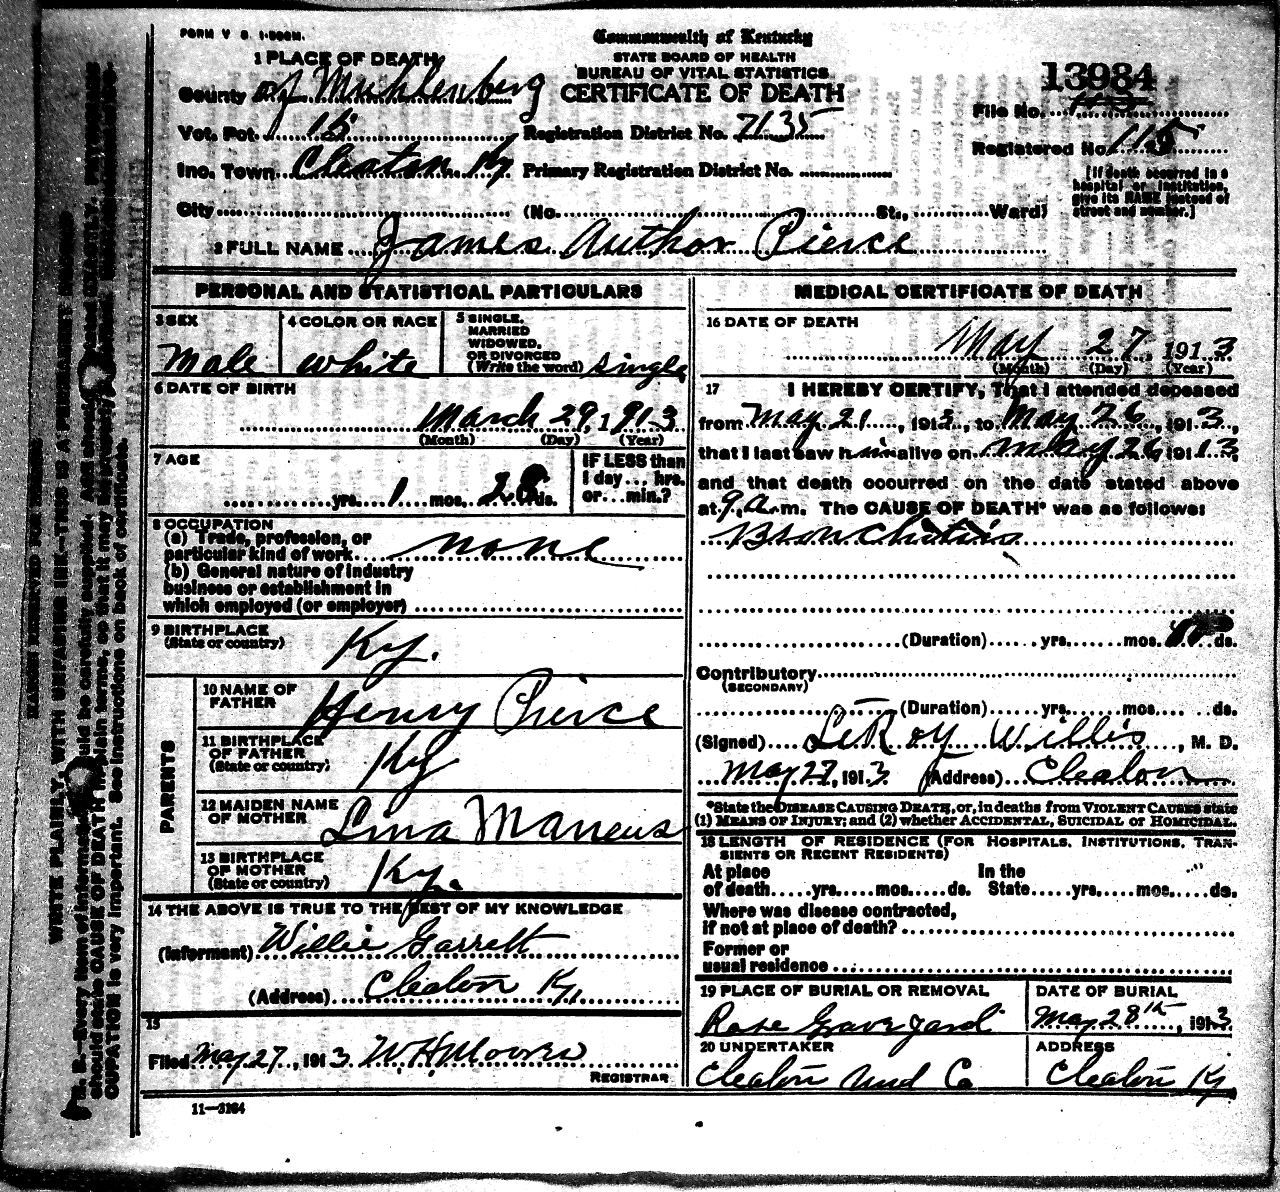 FORM V S. 1-500M.
Commonwealth of Kentucky
STATE BOARD OF HEALTH
BUREAU OF VITAL STATISTICS
CERTIFICATE OF DEATH
1 PLACE OF DEATH
County of Muhlenberg
Vot. Pct. 15 Registration District No. 7135
Inc. Town Cleaton Ky Primary Registration District No.
City (No. St., Ward)
13984
File No.
Registered No. 115
[If death occurred in a hospital or institution, give its NAME instead of street and number.]
2 FULL NAME James Author Pierce
PERSONAL AND STATISTICAL PARTICULARS
3 SEX Male
4 COLOR OR RACE White
5 SINGLE, MARRIED WIDOWED, OR DIVORCED (Write the word) Single
6 DATE OF BIRTH
March 29, 1913
(Month) (Day) (Year)
7 AGE
yrs. 1 mos. 28 ds.
IF LESS than 1 day... hrs. or... min.?
8 OCCUPATION
(a) Trade, profession, or
particular kind of work none
(b) General nature of industry
business or establishment in
which employed (or employer)
9 BIRTHPLACE
(State or country) Ky.
PARENTS
10 NAME OF FATHER Henry Pierce
11 BIRTHPLACE OF FATHER (State or country) Ky
12 MAIDEN NAME OF MOTHER Lina
13 BIRTHPLACE OF MOTHER (State or country) Ky.
14 THE ABOVE IS TRUE TO THE BEST OF MY KNOWLEDGE
(Informant) Willie Garrett
(Address) Cleaton Ky.
15
Filed May 27, 1913 W.H. Moore
REGISTRAR
11—3184
MEDICAL CERTIFICATE OF DEATH
16 DATE OF DEATH
May 27, 1913
(Month) (Day) (Year)
17 I HEREBY CERTIFY, That I attended deceased
from May 21, 1913, to May 26, 1913,
that I last saw him alive on May 26 1913,
and that death occurred on the date stated above
at 9 a.m. The CAUSE OF DEATH* was as follows:
Bronchitis
(Duration) yrs. mos. ds.
Contributory
(SECONDARY)
(Duration) yrs. mos. ds.
(Signed) LeRoy Willis, M. D.
May 27, 1913 (Address) Cleaton
*State the DISEASE CAUSING DEATH, or, in deaths from VIOLENT CAUSES state
(1) MEANS OF INJURY; and (2) whether ACCIDENTAL, SUICIDAL or HOMICIDAL.
18 LENGTH OF RESIDENCE (FOR HOSPITALS, INSTITUTIONS, TRANSIENTS OR RECENT RESIDENTS)
At place of death yrs. mos. ds. In the State yrs. mos. ds.
Where was disease contracted,
if not at place of death?
Former or
usual residence
19 PLACE OF BURIAL OR REMOVAL Rose Graveyard
DATE OF BURIAL May 28th, 1913
20 UNDERTAKER Cleaton Und Co
ADDRESS Cleaton Ky
MARGIN RESERVED FOR BINDING
WRITE PLAINLY, WITH UNFADING INK—THIS IS A PERMANENT RECORD
N. B.—Every item of information should be carefully supplied. AGE should be stated EXACTLY. PHYSICIANS
should state CAUSE OF DEATH in plain terms, so that it may be properly classified. Exact statement of
OCCUPATION is very important. See instructions on back of certificate.